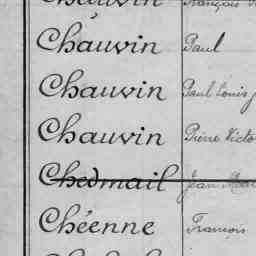 Chauvin François
Chauvin Paul
Chauvin Paul Louis
Chauvin Pierre Victo
Chedmail Jean
Chéenne François